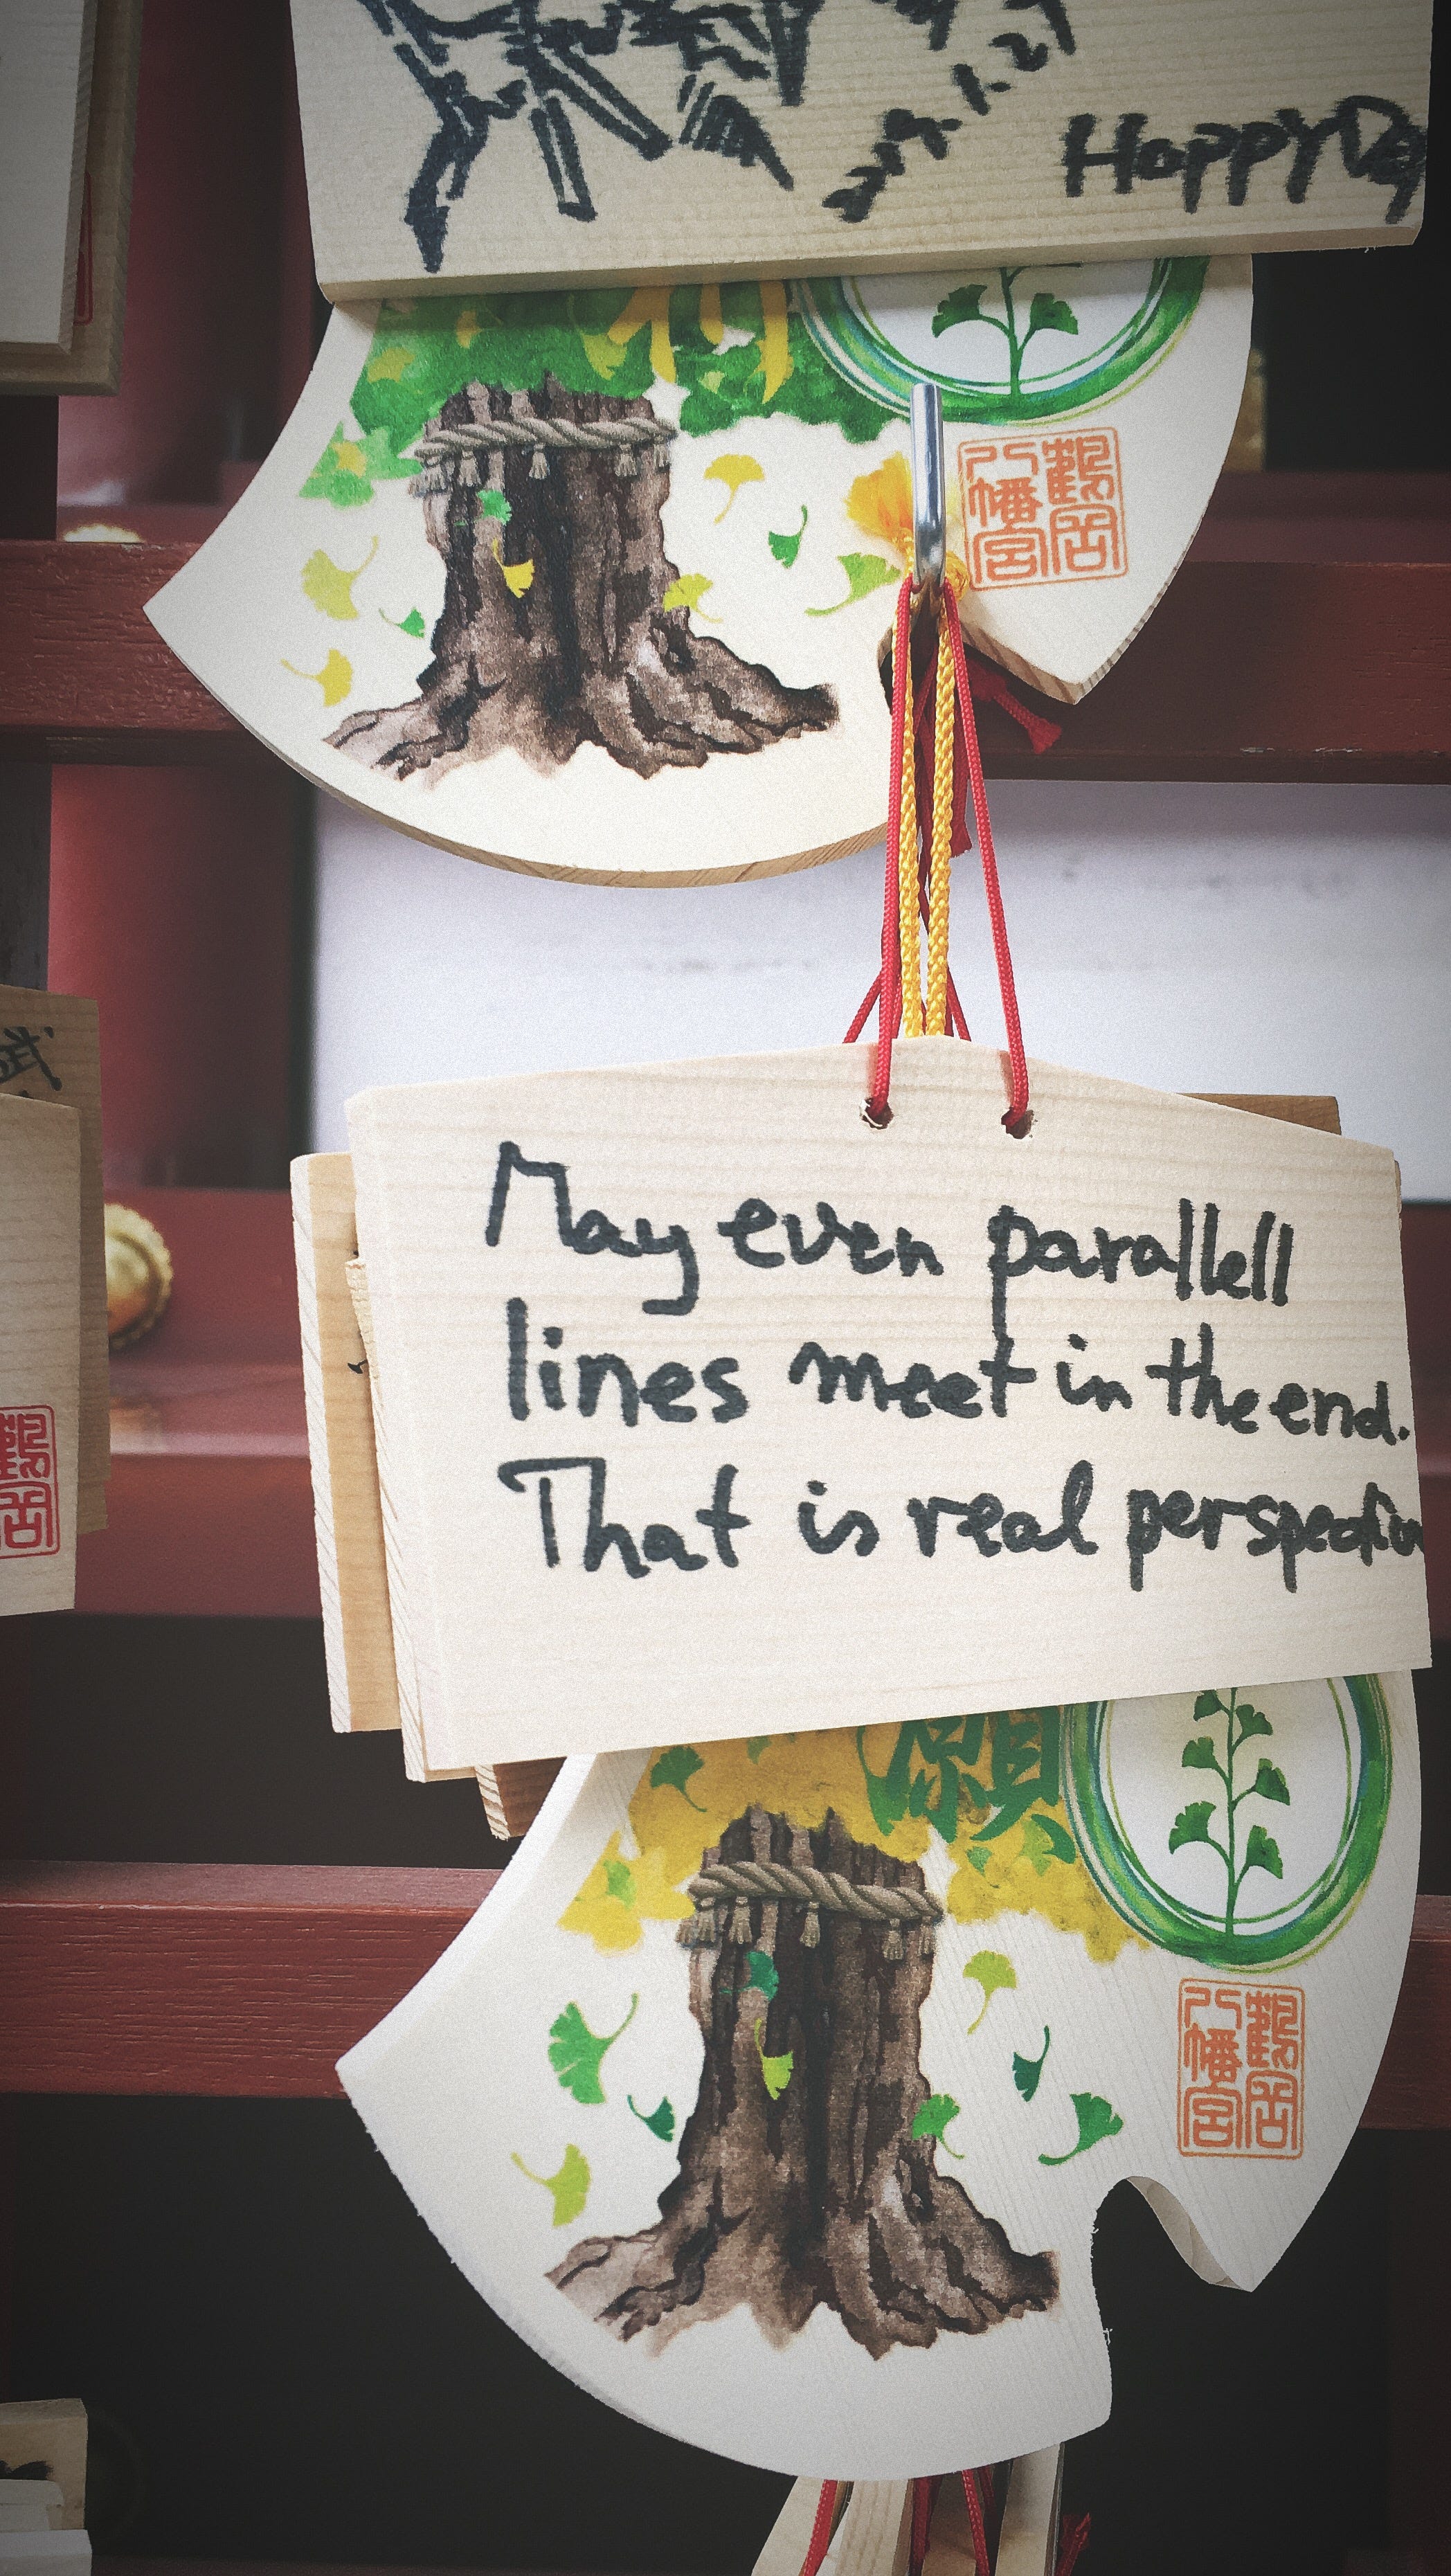 Happy Day
鶴岡
八幡宮
May even parallell
lines meet in the end.
That is real perspective
願
鶴岡
八幡宮
武
鶴岡